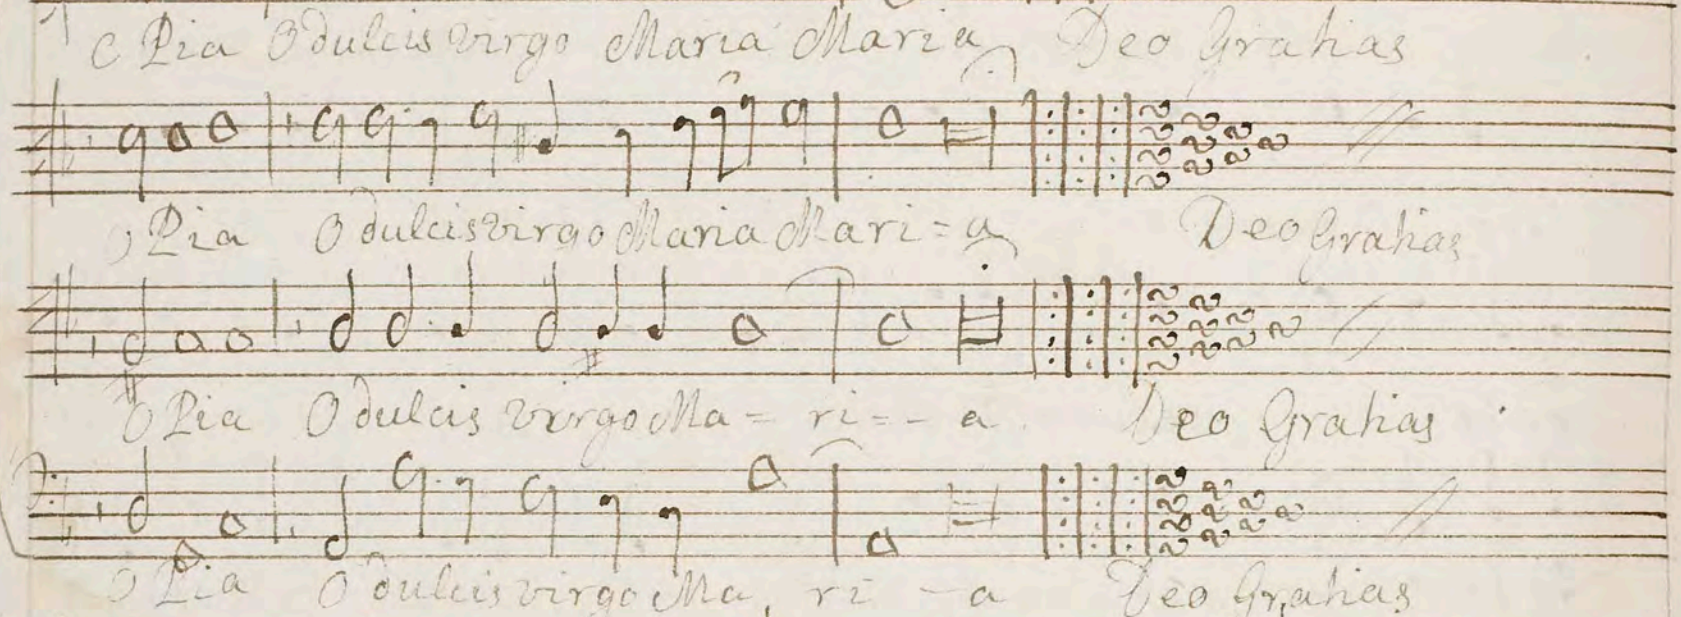 O Pia O dulcis virgo Maria Maria Deo Gratias
O Pia O dulcis virgo Maria Mari=a Deo Gratias
O Pia O dulcis virgo Ma= ri=-a Deo Gratias
O Pia O dulcis virgo Ma, ri -a Deo Gratias